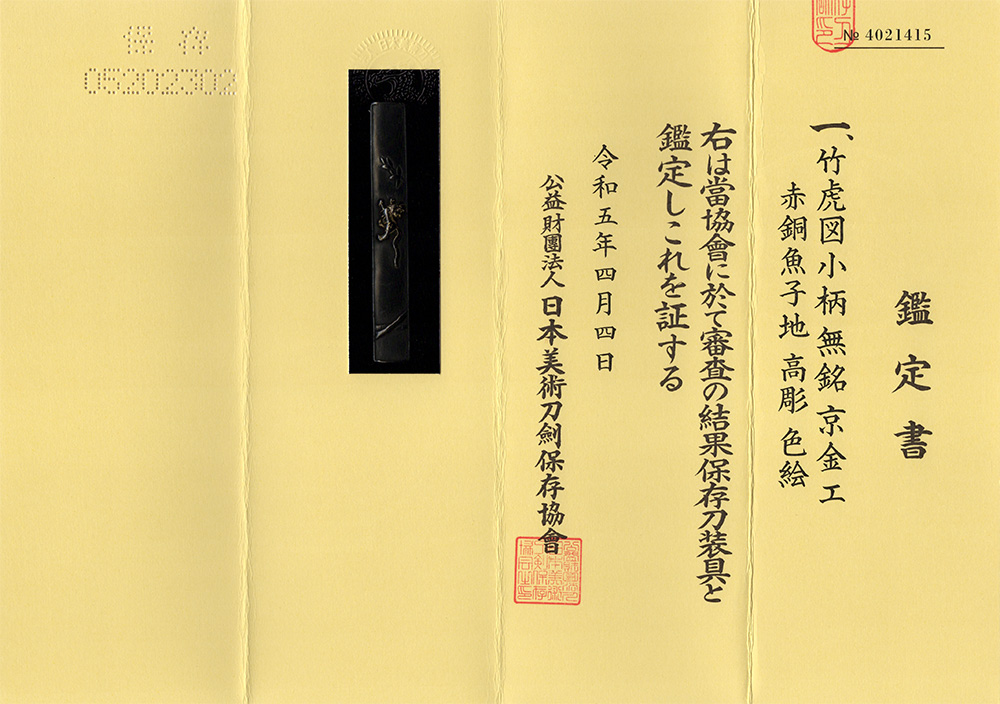 № 4021415
鑑定書
一、竹虎図小柄 無銘 京金工
赤銅魚子地 高彫 色絵
右は當協會に於て審査の結果保存刀装具と
鑑定しこれを証する
令和五年四月四日
公益財團法人 日本美術刀劍保存協會
保存
05202302